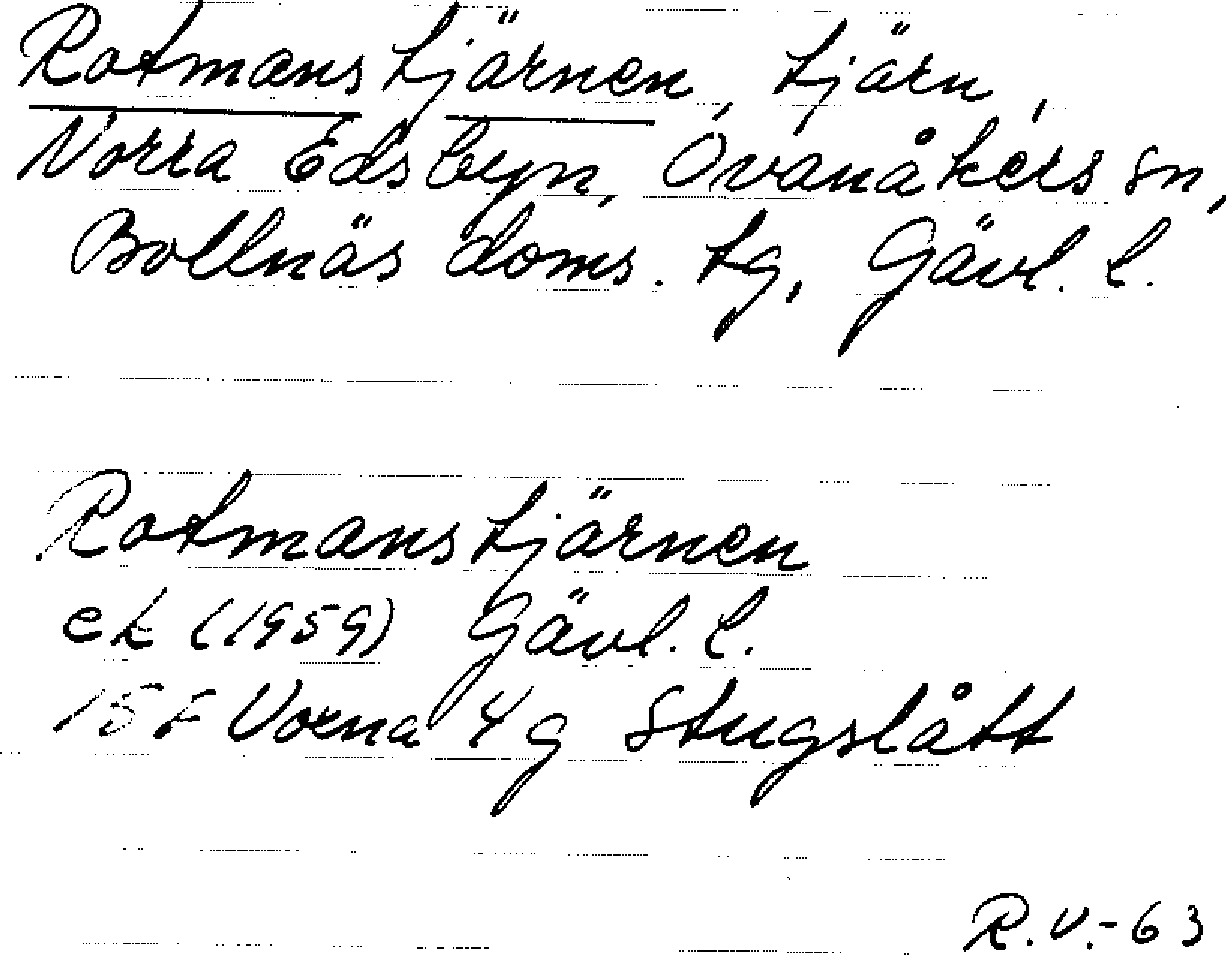 Rotmanstjärnen, tjärn,
Norra Edsbyn, Ovanåkers sn,
Bollnäs doms. tg, Gävl. l.
Rotmanstjärnen
ek (1959) Gävl. l.
15 F Voxna 4 g Stugslått
R.V.-63